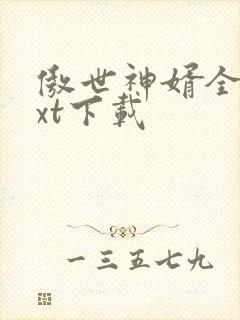 傲世神婿全
xt下载
一三五七九